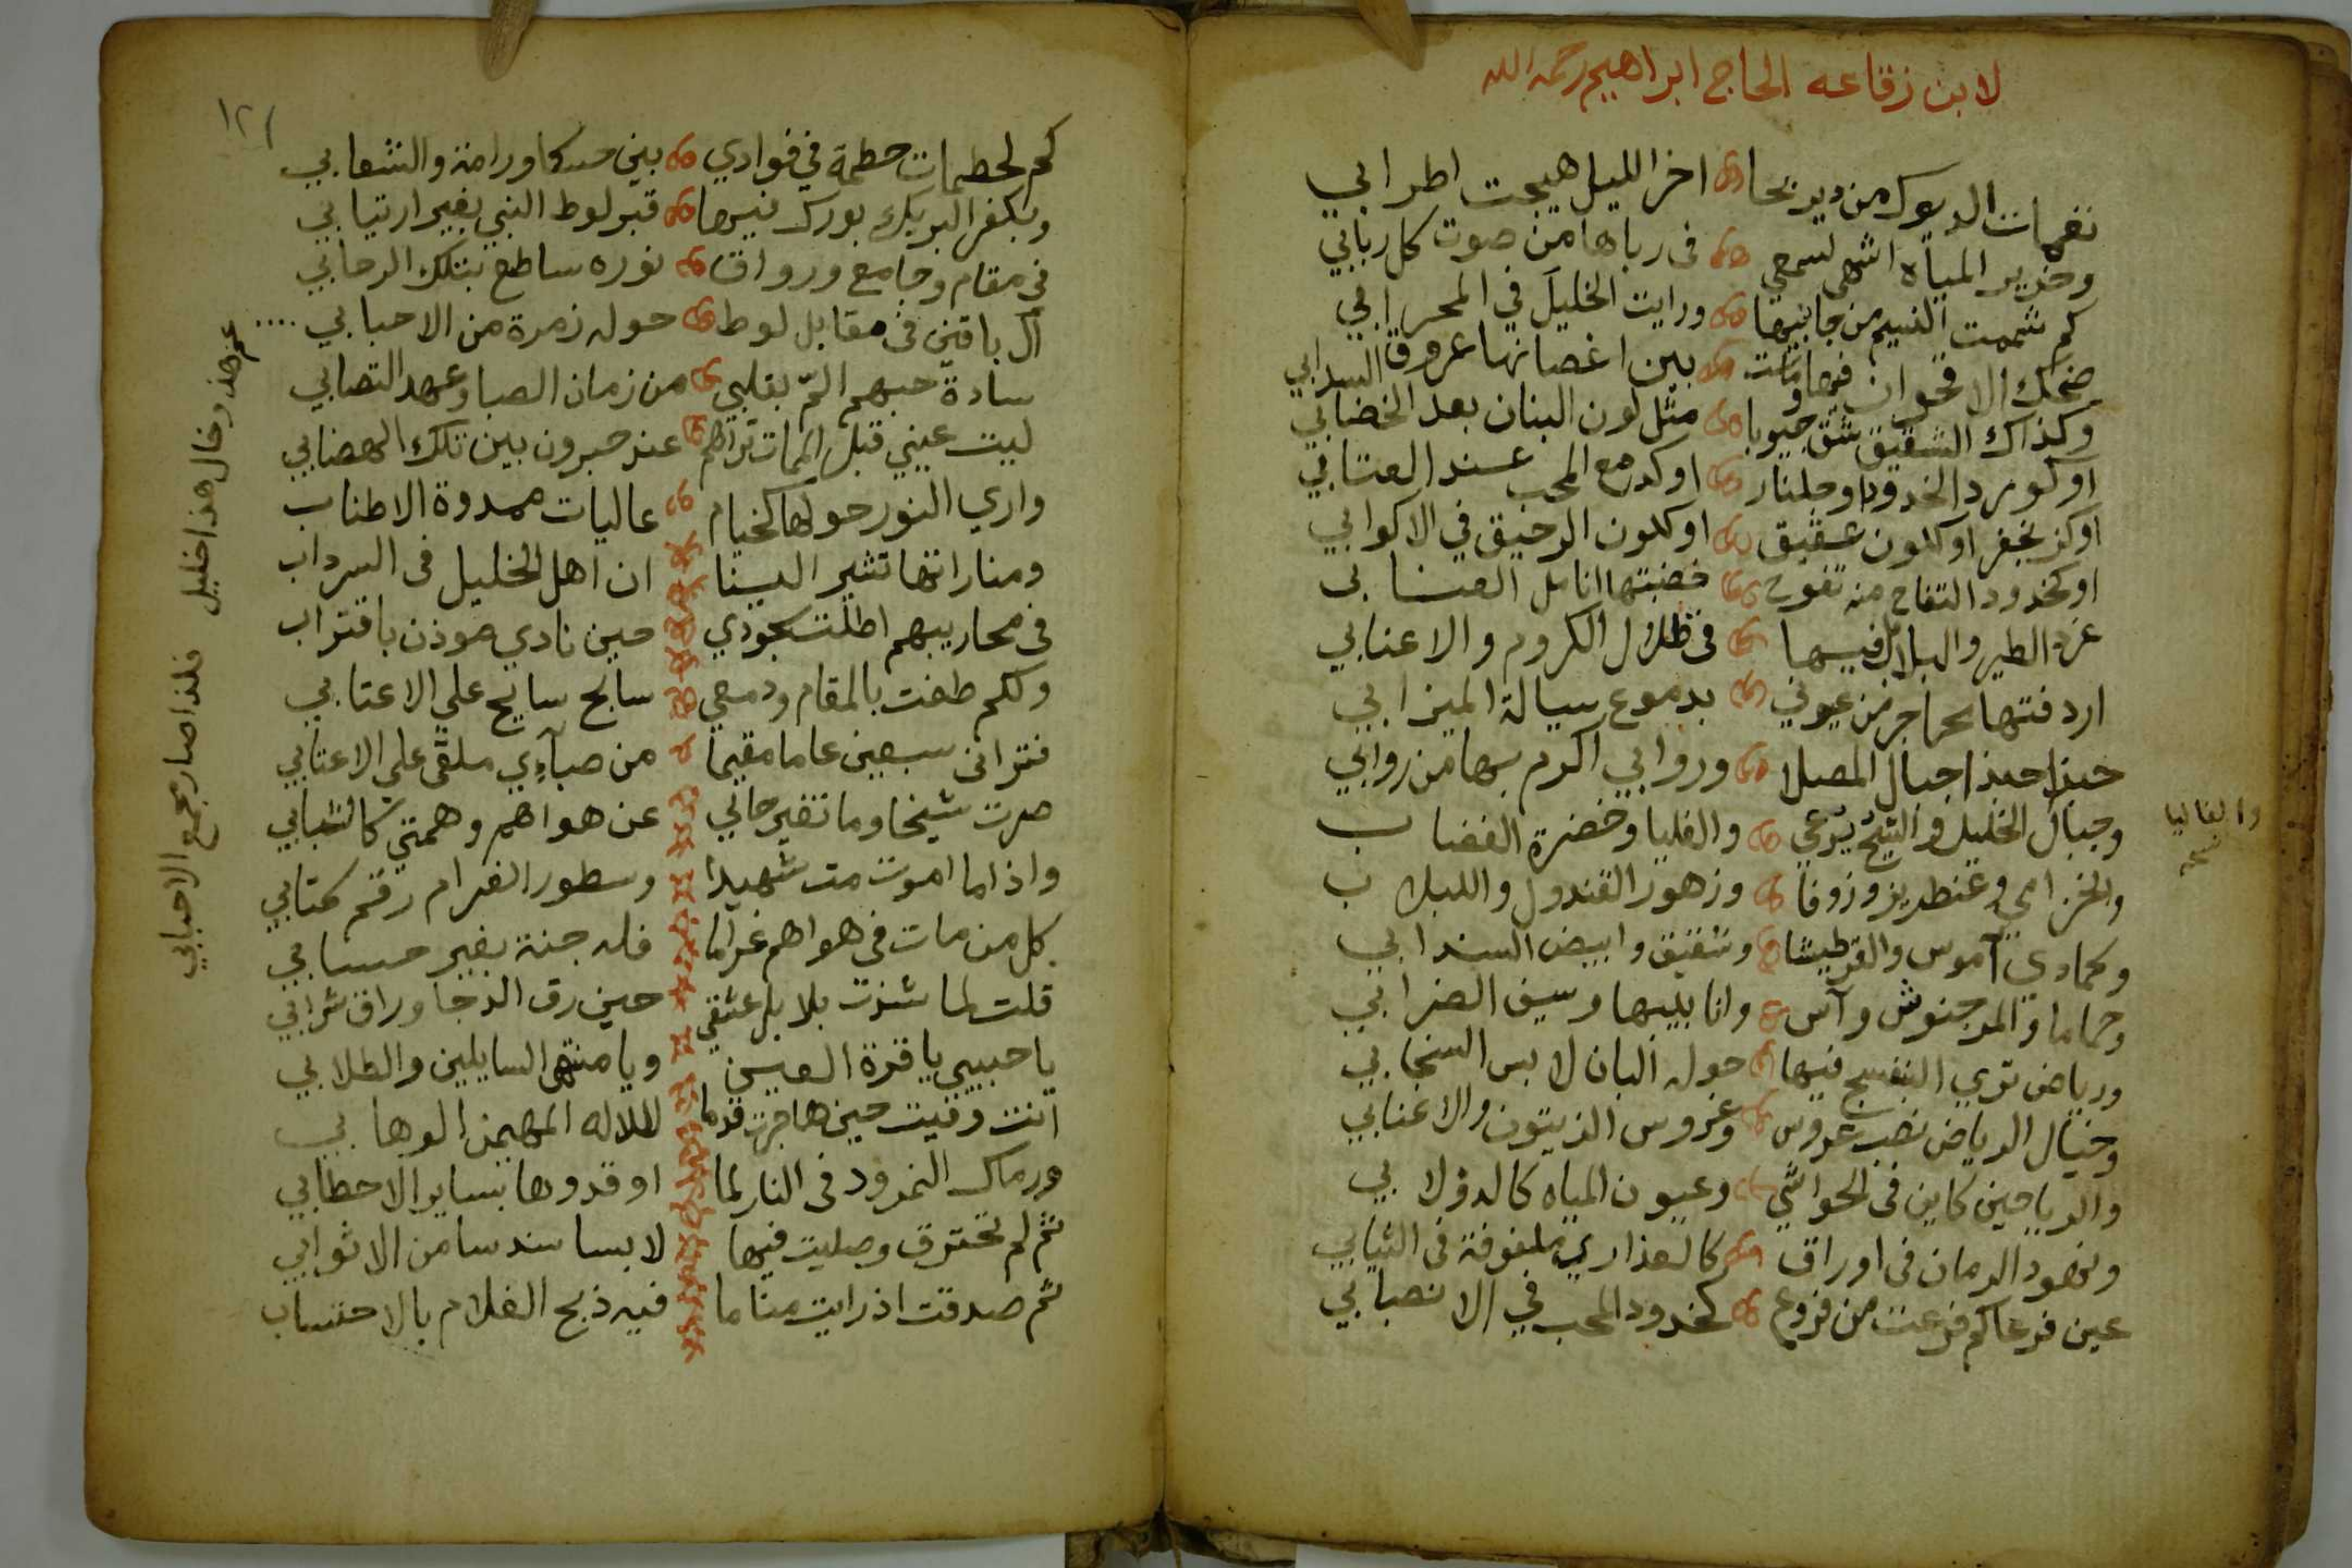 لابن زقاعه الحاج ابراهيم رحمه الله
نغمات الديوك من دير بحا اخر الليل هيجت اطرابي
وخرير المياه اشهى لسمعي فى رباها من صوت كل ربابي
كم شممت النسيم من جانبيها ورايت الخليل في المحرابي
ضحك الاقحوان فيها بين اغصانها عروق السدابي
وكذاك الشقيق شق جيوبا مثل لون البنان بعد الخضابي
او كورد الخدود او جلنار او كدمع المحب عند العتابي
او كزنجفر او كلون عقيق او كلون الرحيق في الاكوابي
او كخدود التفاح منه تفوح خضبتها انامل العنابى
غرد الطير والبلابل فيها فى ظلال الكروم والاعنابي
اردفتها محاجر من عيوني بدموع سيالة الميزابي
حبذا حبذا جبال المصلا وروابي اكرم بها من روابي
وجبال الخليل والشيح يرعي والفليا وخضرة الغضاب
والخزامي وعنطريز وزوفا وزهور القندول واللبلاب
وكمادي آموس والقرطيشا وشقيق وابيض السندابي
وحماما والمردجنوش وآس وانابيبها وسيف الضرابي
ورياض تري البنفسج فيها حوله البان لابس السنجابي
وخيال الرياض نصب عروس وغروس الزيتون والاعنابي
والرياحين كاين فى الحواشي وعيون المياه كالدولابي
ونهود الرمان فى اوراق كالعذاري ملفوفة فى الثيابي
عين فرعا كم فرعت من فروع كخدود المحب في الانصبابي
والغاليا
نسخه
١٢١
كم لحطيمات حطمة في فوادي بين حسكا ورامة والشعابي
وبكفر البريك بورك فيها قبر لوط النبي بغير ارتيابي
في مقام وجامع ورواق نوره ساطع بتلك الرحابي
آل باقين فى مقابل لوط حوله زمرة من الاحبابي
سادة حبهم الم بقلبي من زمان الصبا وعهد التصابي
ليت عيني قبل الممات تراهم عند حبرون بين تلك الهضابي
واري النور حولها كخيام عاليات ممدوة الاطناب
ومناراتها تشير الينا ان اهل الخليل فى السرداب
فى محاريبهم اطلت سجودي حين نادي موذن باقتراب
ولكم طفت بالمقام ودمعي سابح سايح علي الاعتابي
فترانى سبعين عاما مقيما من صباي ملقى علي الاعتابي
صرت شيخا وما تغير حالي عن هواهم وهمتي كالشبابي
واذا ما اموت مت شهيدا وسطور الغرام رقم كتابي
كل من مات فى هواهم غراما فله جنة بغير حسابي
قلت لما شذت بلابل عشقي حين رق الدجا وراق شرابي
يا حبيبي يا قرة العين ويا منتهى السايلين والطلابي
انت وفيت حين هاجرت قدما للاله المهيمن الوهابي
ورماك النمرود فى النار لما اوقدوها بساير الاحطابي
ثم لم تحترق وصليت فيها لابسا سندسا من الاثوابي
ثم صدقت اذ رايت مناما فيه ذبح الغلام بالاحتساب
عم هذا وخال هذا خليل فلذا صار مجمع الاحبابي